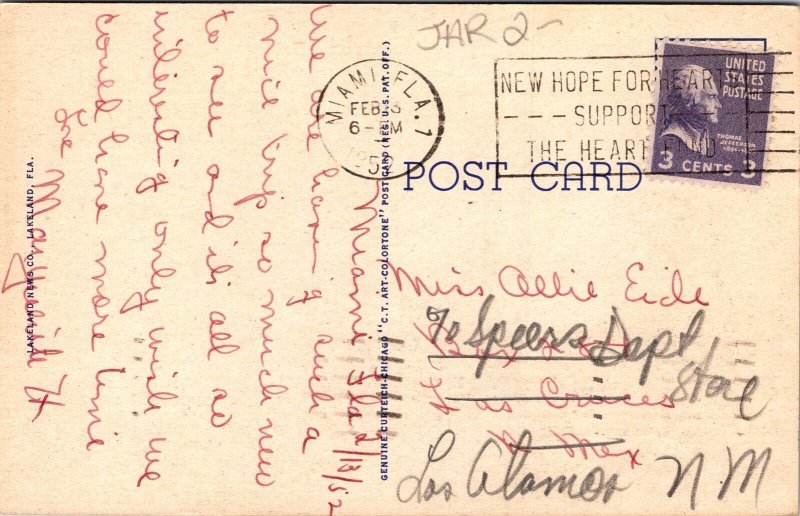 JAR 2-
MIAMI, FLA. 1
FEB 13
6-PM
1952
NEW HOPE FOR HEARTS
SUPPORT
THE HEART FUND
UNITED
STATES
POSTAGE
THOMAS
JEFFERSON
3 CENTS 3
POST CARD
Miami Fla 2/13/52
We are having such a
nice trip so much new
to see and it is all so
interesting only wish we
could have more time
LAKELAND NEWS CO., LAKELAND, FLA.
GENUINE CURTEICH-CHICAGO "C.T. ART-COLORTONE" POSTCARD (REG. U.S. PAT. OFF.)
Miss Allie Eide
Box
% Speers Dept
Store
Las Cruces
N Mex
Los Alamos NM